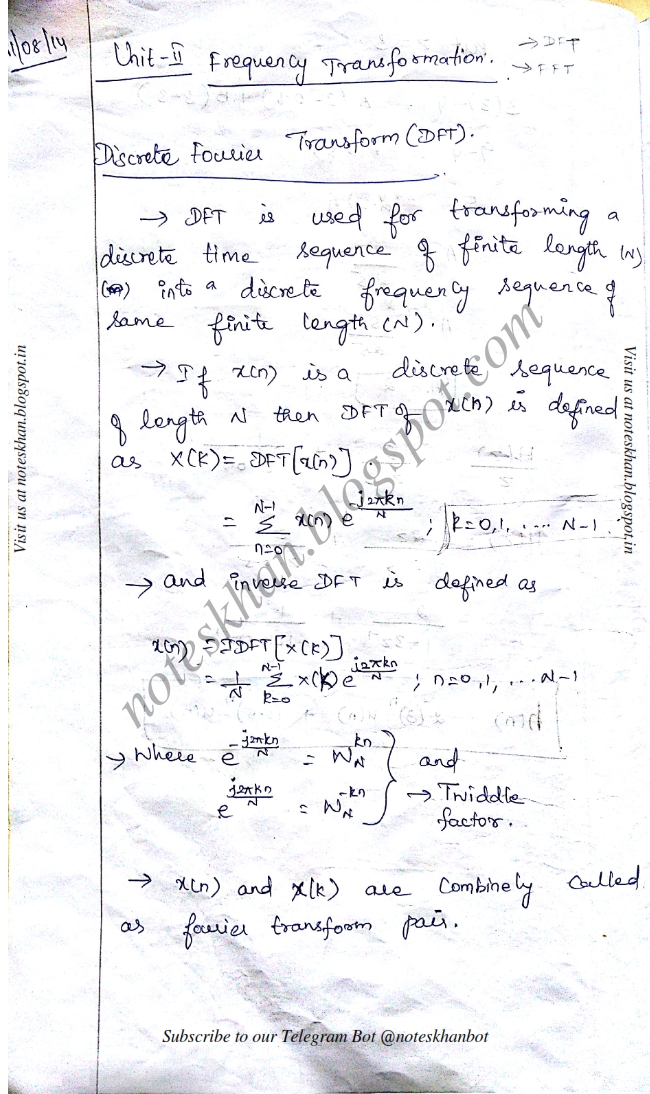 1/08/14
Unit-II Frequency Transformation. → DFT
→ FFT
Discrete Fourier Transform (DFT).
→ DFT is used for transforming a
discrete time sequence of finite length (N)
into a discrete frequency sequence of
same finite length (N).
→ If x(n) is a discrete sequence
of length N then DFT of x(n) is defined
as X(K) = DFT[x(n)].
= Σ_{n=0}^{N-1} x(n) e^{-j2πkn/N} ; k=0,1, .... N-1.
→ and inverse DFT is defined as
x(n) = IDFT[X(k)]
= 1/N Σ_{k=0}^{N-1} X(k) e^{j2πkn/N} ; n=0,1, ... N-1
→ Where e^{-j2πkn/N} = W_N^{kn} } and
e^{j2πkn/N} = W_N^{-kn} } → Twiddle
factor.
→ x(n) and X(k) are Combinely Called
as fourier transform pair.
Visit us at noteskhan.blogspot.in
Visit us at noteskhan.blogspot.in
noteskhan.blogspot.com
Subscribe to our Telegram Bot @noteskhanbot